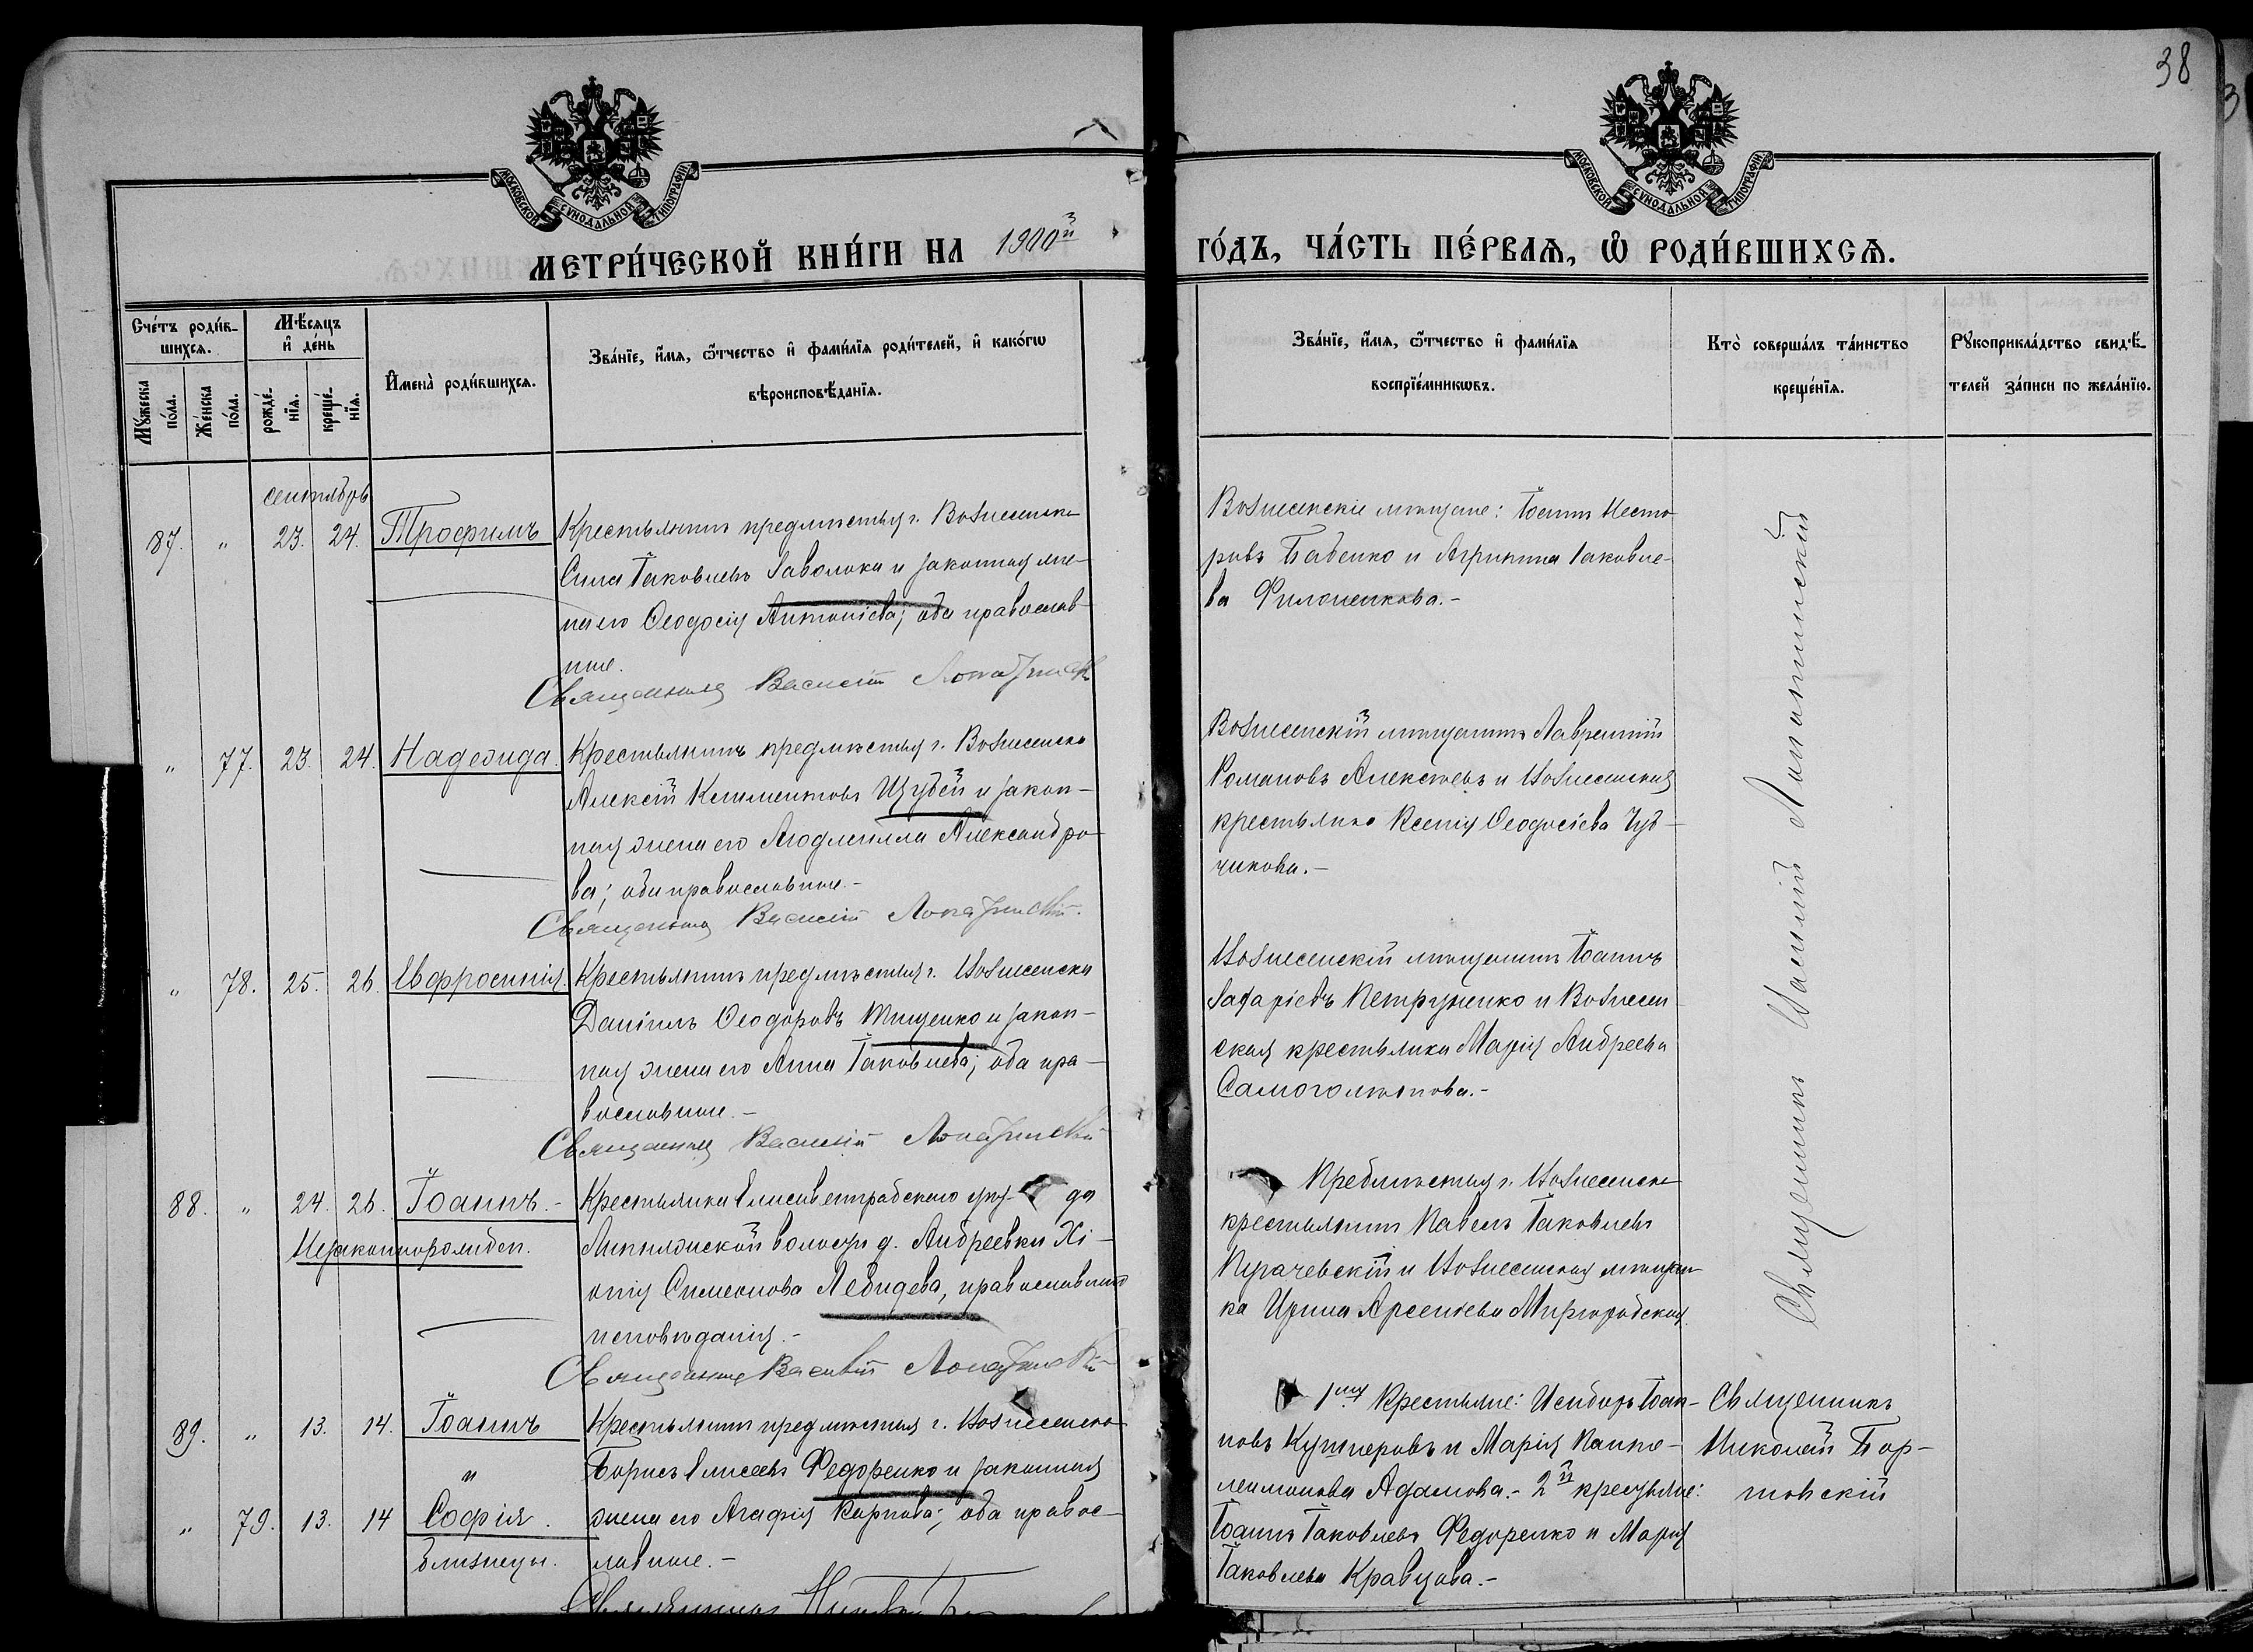 38
МОСКОВСКОЙ СУНОДАЛЬНОЙ ТИПОГРАФІИ
МОСКОВСКОЙ СУНОДАЛЬНОЙ ТИПОГРАФІИ
МЕТРИ́ЧЕСКОЙ КНИ́ГИ НА 1900й
ГО́ДЪ, ЧА́СТЬ ПЕ́РВАѦ, Ѽ РОДИ́ВШИХСѦ.
Сче́тъ роди́в-
шихсѧ.
Мꙋ́жеска по́ла.
Же́нска по́ла.
Мѣ́сѧцъ
и҆ де́нь
рожде́-
нїѧ.
креще́-
нїѧ.
И҆мена̀ роди́вшихсѧ.
Зва́нїе, и҆́мѧ, ѻ҆́тчество и҆ фами́лїѧ роди́телей, и҆ како́гѡ
вѣроисповѣ́данїѧ.
Зва́нїе, и҆́мѧ, ѻ҆́тчество и҆ фами́лїѧ
воспрїе́мникѡвъ.
Кто̀ соверша́лъ та́инство
креще́нїѧ.
Рꙋкоприкла́дство свидѣ́-
телей за́писи по жела́нїю.
сентябрь
87. " 23. 24. Трофимъ
Крестьянинъ предмѣстья г. Вознесенска
Сила Іаковлевъ Заволока и законная же-
на его Ѳеодосія Антоніева; оба православ-
ные.
Священникъ Василій Лопатинскій
Вознесенскіе мѣщане: Іоаннъ Несто-
ровъ Бабенко и Агрипина Іаковле-
ва Филоненкова.-
" 77. 23. 24. Надежда.
Крестьянинъ предмѣстья г. Вознесенска
Алексій Климентовъ и закон-
ная жена его Людмилла Александро-
ва; оба православные.-
Священникъ Василій Лопатинскій.
Вознесенскій мѣщанинъ Лаврентій
Романовъ Алексѣевъ и Вознесенская
крестьянка Ксенія Ѳеодосіева Чуб-
чикова.-
" 78. 25. 26. Евфросинія.
Крестьянинъ предмѣстья г. Вознесенска
Даніилъ Ѳеодоровъ Тищенко и закон-
ная жена его Анна Іаковлева; оба пра-
вославные.-
Священникъ Василій Лопатинскій
Вознесенскій мѣщанинъ Іоаннъ
Захаріевъ Петруненко и Вознесен-
ская крестьянка Марія Андреева
88. " 24. 26. Іоаннъ.-
Незаконнорожден.
Крестьянка Елисаветградскаго уѣз- да
волости д. Андреевки Хі-
онія Симеонова Лебидева, православнаго
исповѣданія.-
Священникъ Василій Лопатинскій
Предмѣстья г. Вознесенска
крестьянинъ Павелъ Іаковлевъ
и Вознесенская мѣщан-
ка Ирина Арсеніева Миргородская.
Священникъ Василій Лопатинскій
89. " 13. 14. Іоаннъ
и
" 79. 13. 14 Софія.
близнецы.
Крестьянинъ предмѣстья г. Вознесенска
Борисъ Елисеевъ Федоренко и законная
жена его Агафія Карпова; оба правос-
лавные.-
Священникъ Николай
1го Крестьяне: Исидоръ Іоан-
новъ Кушнеровъ и Марія Панте-
леимонова Адамова.- 2й крестьяне:
Іоаннъ Іаковлевъ Федоренко и Марія
Іаковлева Кравцова.-
Священникъ
Николай Бор-
товскій